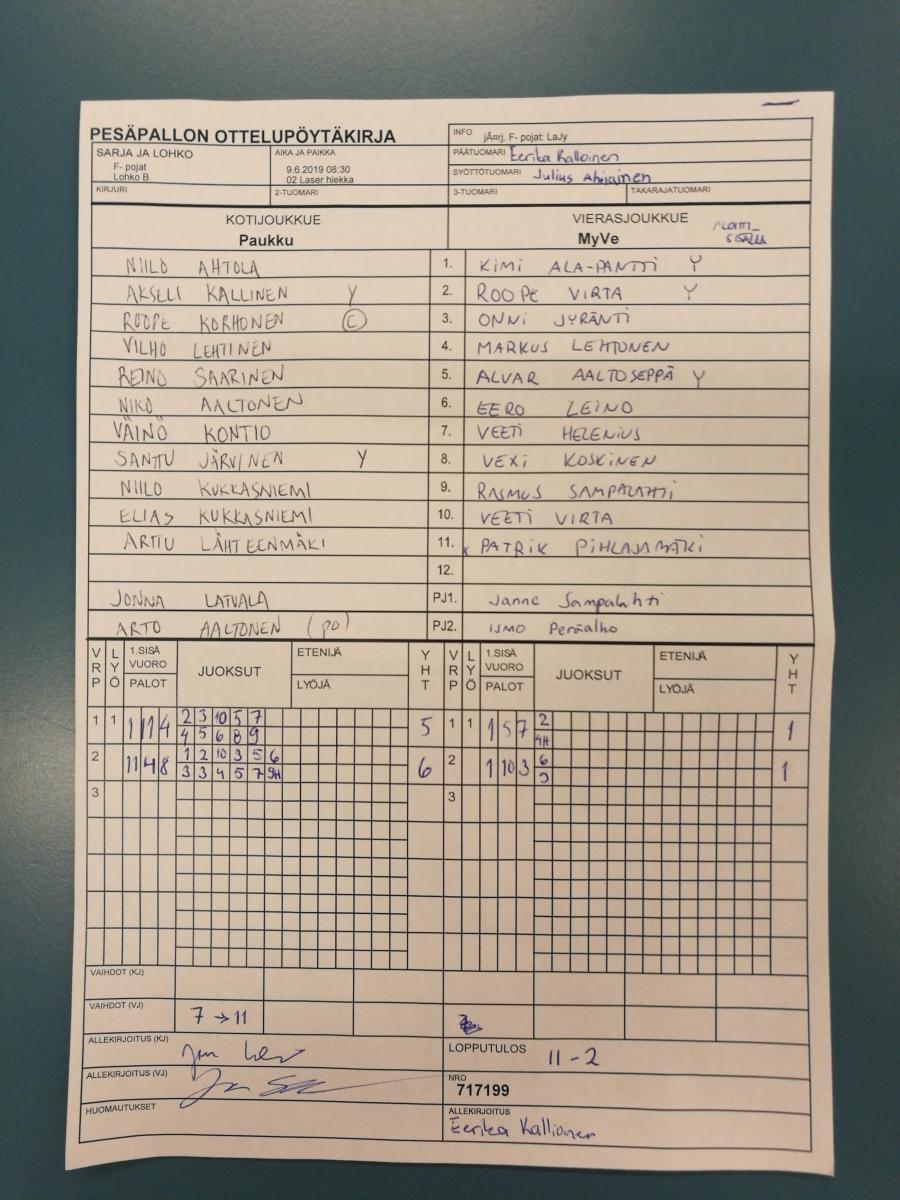 PESÄPALLON OTTELUPÖYTÄKIRJA
INFO jÃ¤rj. F- pojat: LaJy
SARJA JA LOHKO
F- pojat
Lohko B
AIKA JA PAIKKA
9.6.2019 08:30
02 Laser hiekka
PÄÄTUOMARI Eerika Kallioinen
SYÖTTÖTUOMARI Julius Ahjainen
KIRJURI 2-TUOMARI 3-TUOMARI TAKARAJATUOMARI
KOTIJOUKKUE VIERASJOUKKUE
Paukku MyVe
NIILO AHTOLA 1. KIMI ALA-PANTTI Y
AKSELI KALLINEN Y 2. ROOPE VIRTA Y
ROOPE KORHONEN C 3. ONNI JYRÄNTI
VILHO LEHTINEN 4. MARKUS LEHTONEN
REINO SAARINEN 5. ALVAR AALTOSEPPÄ Y
NIKO AALTONEN 6. EERO LEINO
VÄINÖ KONTIO 7. VEETI HELENIUS
SANTTU JÄRVINEN Y 8. VEXI KOSKINEN
NIILO KUKKASNIEMI 9. RASMUS SAMPALAHTI
ELIAS KUKKASNIEMI 10. VEETI VIRTA
ARTTU LÄHTEENMÄKI 11. x PATRIK PIHLAJAMÄKI
12.
JONNA LATVALA PJ1. Janne Sampalahti
ARTO AALTONEN (po) PJ2. ISMO Peräalho
VRP LYÖ 1.SISÄ VUORO PALOT JUOKSUT ETENIJÄ LYÖJÄ YHT VRP LYÖ 1.SISÄ VUORO PALOT JUOKSUT ETENIJÄ LYÖJÄ YHT
1 1 1 11 4 2 3 10 5 7 5 1 1 1 5 7 2 1
4 5 6 8 9 4H
2 11 4 8 1 2 10 3 5 6 6 2 1 10 3 6 1
3 3 4 5 7 9H 9
3 3
VAIHDOT (KJ)
VAIHDOT (VJ) 7 → 11
ALLEKIRJOITUS (KJ) LOPPUTULOS 11 - 2
ALLEKIRJOITUS (VJ) NRO
717199
HUOMAUTUKSET ALLEKIRJOITUS
Eerika Kallioinen